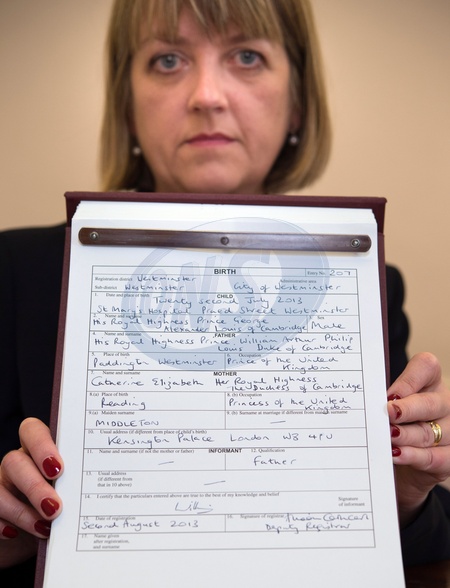 BIRTH Entry No. 207
Registration district Westminster Administrative area
Sub-district Westminster City of Westminster
1. Date and place of birth CHILD
Twenty second July 2013
St Mary's Hospital Praed Street Westminster
2. Name and surname 3. Sex
His Royal Highness Prince George
Alexander Louis of Cambridge Male
4. Name and surname FATHER
His Royal Highness Prince William Arthur Philip
Louis Duke of Cambridge
5. Place of birth 6. Occupation
Paddington Westminster Prince of the United
Kingdom
7. Name and surname MOTHER
Catherine Elizabeth Her Royal Highness
The Duchess of Cambridge
8.(a) Place of birth 8.(b) Occupation
Reading Princess of the United
Kingdom
9.(a) Maiden surname 9.(b) Surname at marriage if different from maiden surname
MIDDLETON —
10. Usual address (if different from place of child's birth)
Kensington Palace London W8 4PU
11. Name and surname (if not the mother or father) INFORMANT 12. Qualification
— Father
13. Usual address
(if different from
that in 10 above)
—
14. I certify that the particulars entered above are true to the best of my knowledge and belief
Signature
of informant
15. Date of registration 16. Signature of registrar
Second August 2013
Deputy Registrar
17. Name given
after registration,
and surname